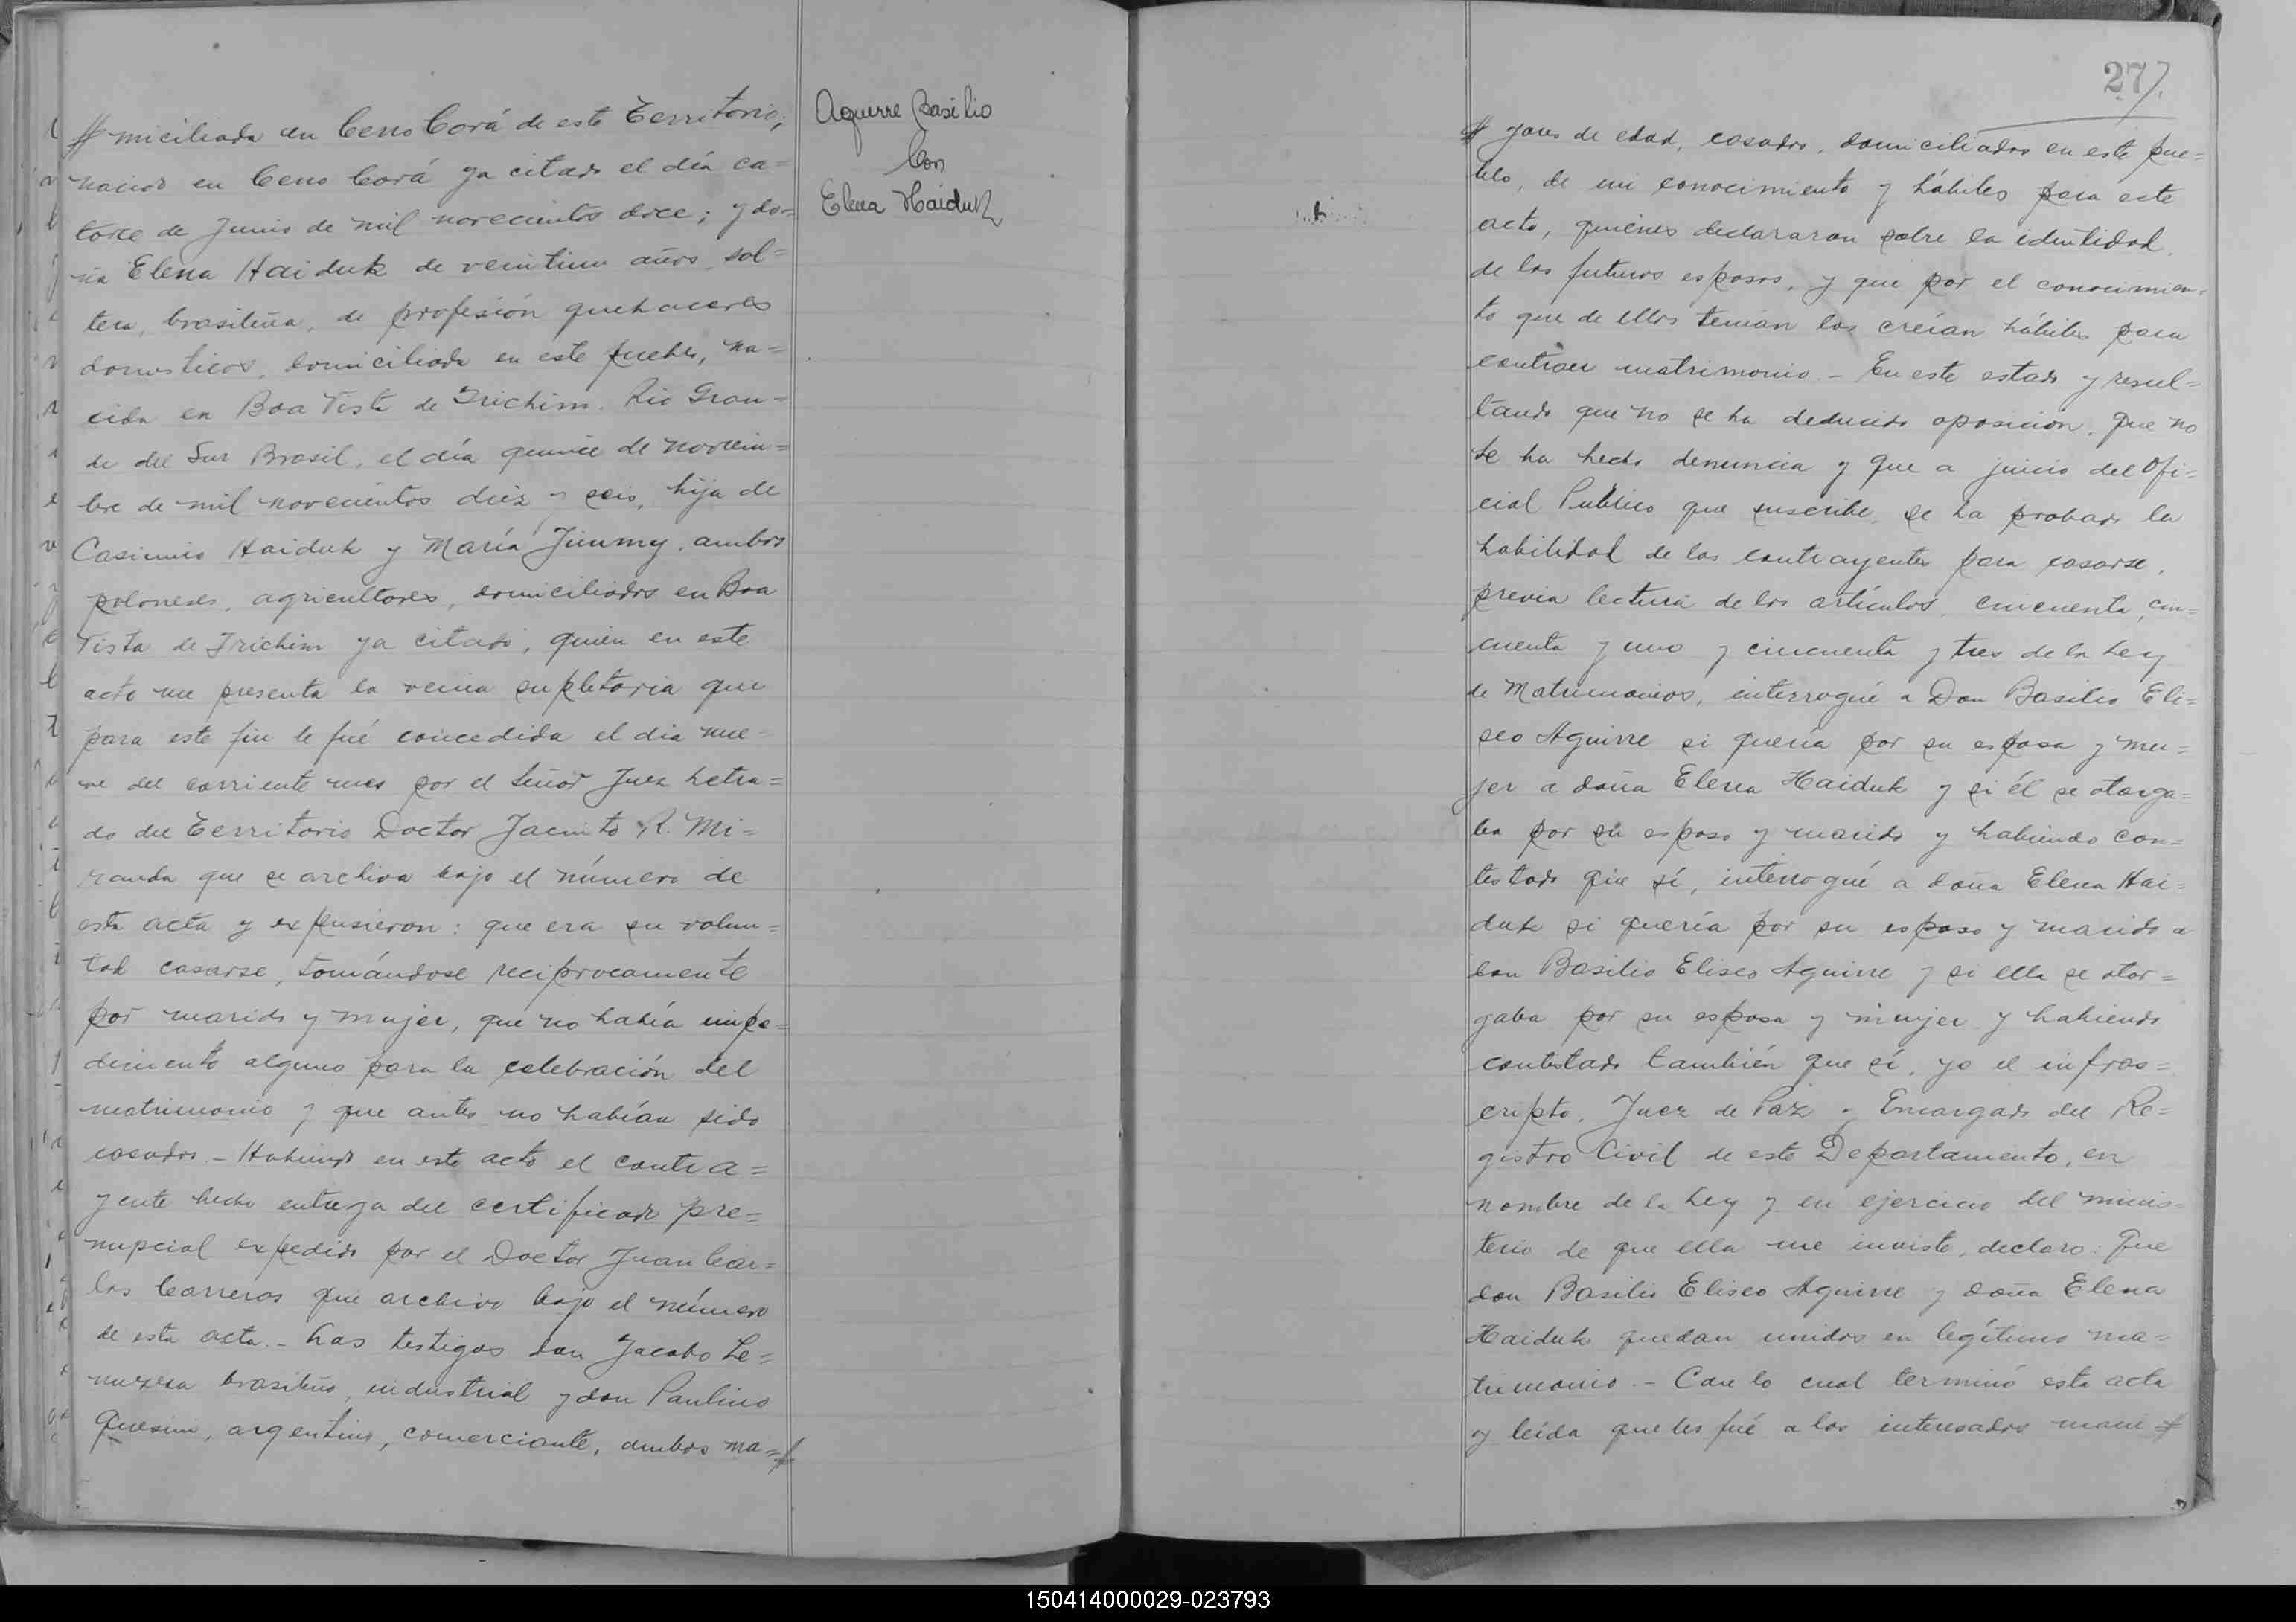 # miciliada en Cerro Corá de este Territorio,
nacido en Cerro Corá ya citado el día ca=
torce de Junio de mil novecientos doce; y do=
ña Elena Haiduk de veintiun años, sol=
tera, brasileña, de profesión quehaceres
domesticos, domiciliada en este pueblo, na=
cida en Boa Vista de Irichim. Rio Gran=
de del Sur Brasil, el día quince de noviem=
bre de mil novecientos diez y seis, hija de
Casimiro Haiduk y María Jimmy, ambos
poloneses, agricultores, domiciliados en Boa
Vista de Irichim ya citado, quien en este
acto me presenta la venia supletoria que
para este fin le fué concedida el dia nue=
ve del corriente mes por el Señor Juez Letra=
do del Territorio Doctor Jacinto R. Mi=
randa que se archiva bajo el número de
esta acta y expusieron: que era su volun=
tad casarse, tomándose reciprocamente
por marido y mujer, que no había impe=
dimento alguno para la celebración del
matrimonio y que antes no habían sido
casados.- Habiendo en este acto el contra=
yente hecho entrega del certificado pre=
nupcial expedido por el Doctor Juan Car=
los Carreras que archivo bajo el número
de esta acta.- Los testigos don Jacobo
brasileño, industrial y don Paulino
argentino, comerciante, ambos ma=#
Aguirre Basilio
Con
Elena Haiduk
277.
# yores de edad, casados, domiciliados en este pue=
blo, de mi conocimiento y hábiles para este
acto, quienes declararon sobre la identidad
de los futuros esposos, y que por el conocimien=
to que de ellos tenían los creían hábiles para
contraer matrimonio.- En este estado y resul=
tando que no se ha deducido oposición, que no
se ha hecho denuncia y que a juicio del Ofi=
cial Público que suscribe, se ha probado la
habilidad de los contrayentes para casarse,
previa lectura de los artículos, cincuenta, cin=
cuenta y uno y cincuenta y tres de la Ley
de Matrimonios, interrogué a Don Basilio Eli=
seo Aguirre si quería por su esposa y mu=
jer a doña Elena Haiduk y si él se otorga=
ba por su esposo y marido y habiendo con=
testado que sí, interrogué a doña Elena Hai=
duk si quería por su esposo y marido a
don Basilio Eliseo Aguirre y si ella se otor=
gaba por su esposa y mujer y habiendo
contestado también que sí, yo el infras=
cripto, Juez de Paz y Encargado del Re=
gistro Civil de este Departamento, en
nombre de la Ley y en ejercicio del minis=
terio de que ella me inviste, declaro: Que
don Basilio Eliseo Aguirre y doña Elena
Haiduk quedan unidos en legítimo ma=
trimonio.- Con lo cual terminó esta acta
y leída que les fué a los interesados mani #
150414000029-023793